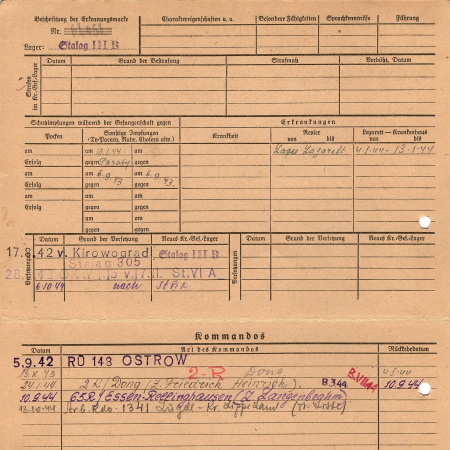 Beschriftung der Erkennungsmarke
Nr.
Lager: Stalag III B
Charaktereigenschaften u. a.
Besondere Fähigkeiten
Sprachkenntnisse
Führung
Strafen im Kr.-Gef.-Lager
Datum
Grund der Bestrafung
Strafmaß
Verbüßt, Datum
Schutzimpfungen während der Gefangenschaft gegen
Pocken
Sonstige Impfungen
(Ty-Paraty, Ruhr, Cholera usw.)
Erkrankungen
Krankheit
Revier
von bis
Lazarett — Krankenhaus
von bis
am
am am
Lager Lazarett 4.1.44 - 13.1.44
Erfolg
gegen Paraty gegen
am
am 6.9.43 am 6.9.43
Erfolg
gegen gegen
am
am am
Erfolg
gegen gegen
am am
gegen gegen
Versetzungen
Datum
Grund der Versetzung
Neues Kr.-Gef.-Lager
Datum
Grund der Versetzung
Neues Kr.-Gef.-Lager
17.9.42 v. Kirowograd Stalag III B
Stalag 305
St. VI A
6.10.44 nach
Kommandos
Datum
Art des Kommandos
Rückkehrdatum
5.9.42 RÜ 143 OSTROW
2-R Dong
24.1.44 2 R/Dong (Z. Friedrich Heinrich). B.344 10.9.44
10.9.44 65R/Essen-Rellinghausen (Z Langenbrahm)
13.10.44 Arb. Kdo - 1341 Lügde - Kr Lippe Land